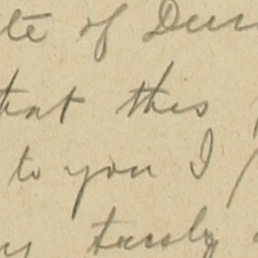 te of
that this
to you I
truly